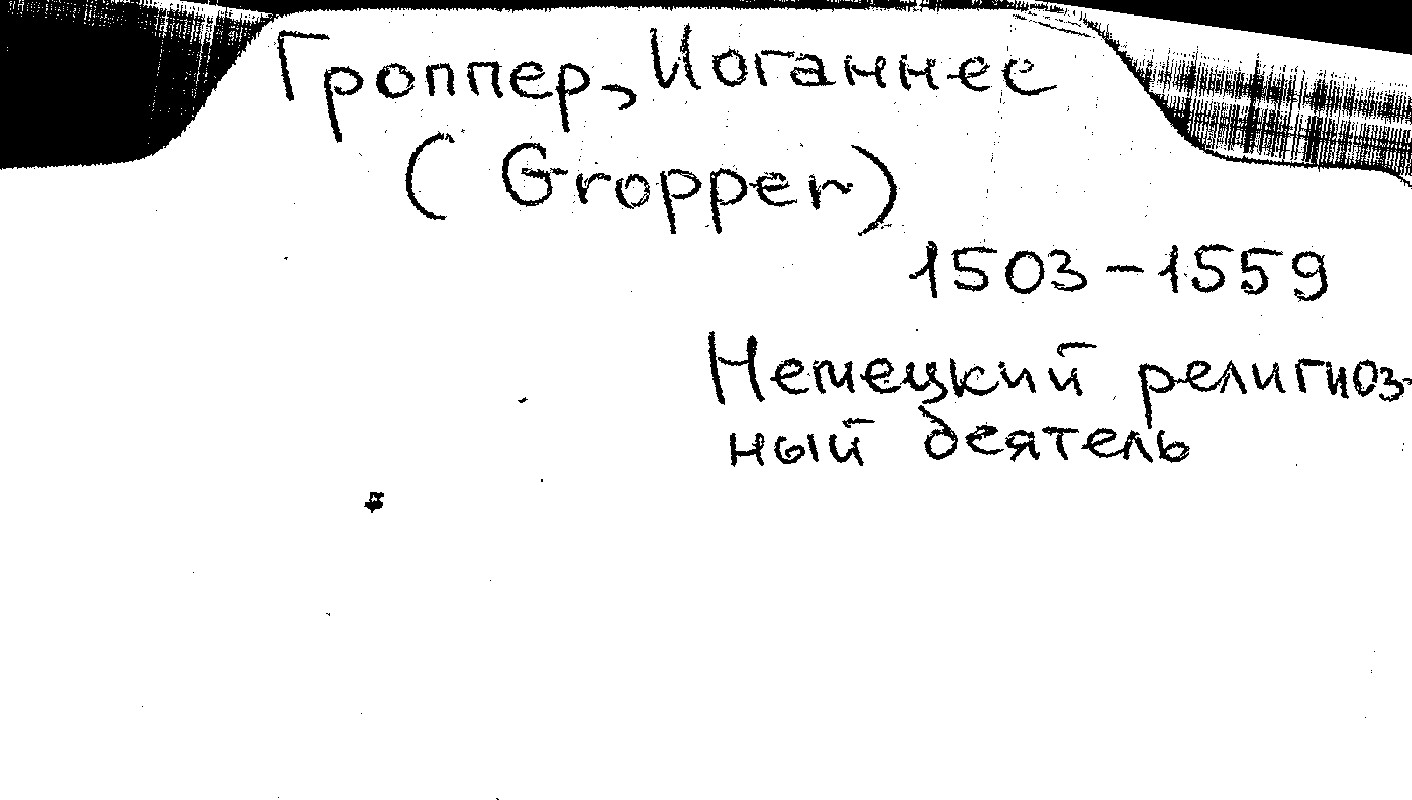 Гроппер, Иоганнес
(Gropper)
1503-1559
Немецкий религиоз-
ный деятель